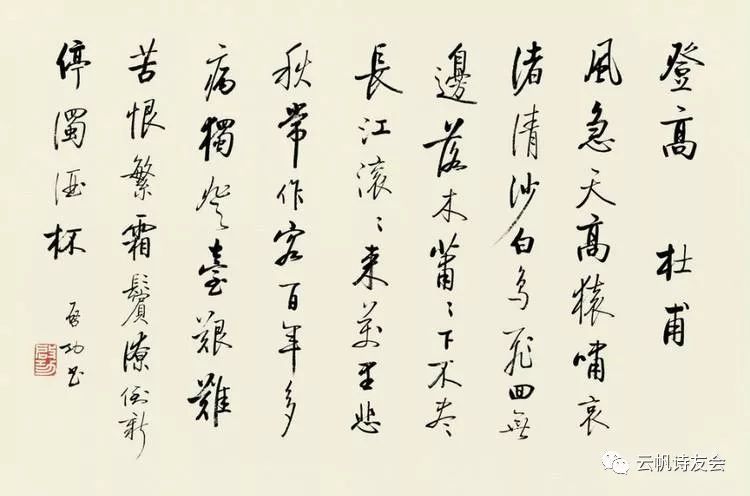 登高 杜甫
風急天高猿嘯哀
渚清沙白鳥飛回無
邊落木蕭〻下不盡
長江滾〻來萬里悲
秋常作客百年多
病獨登臺艱難
苦恨繁霜鬢潦倒新
停濁酒杯
啓功書
啓功
云帆诗友会